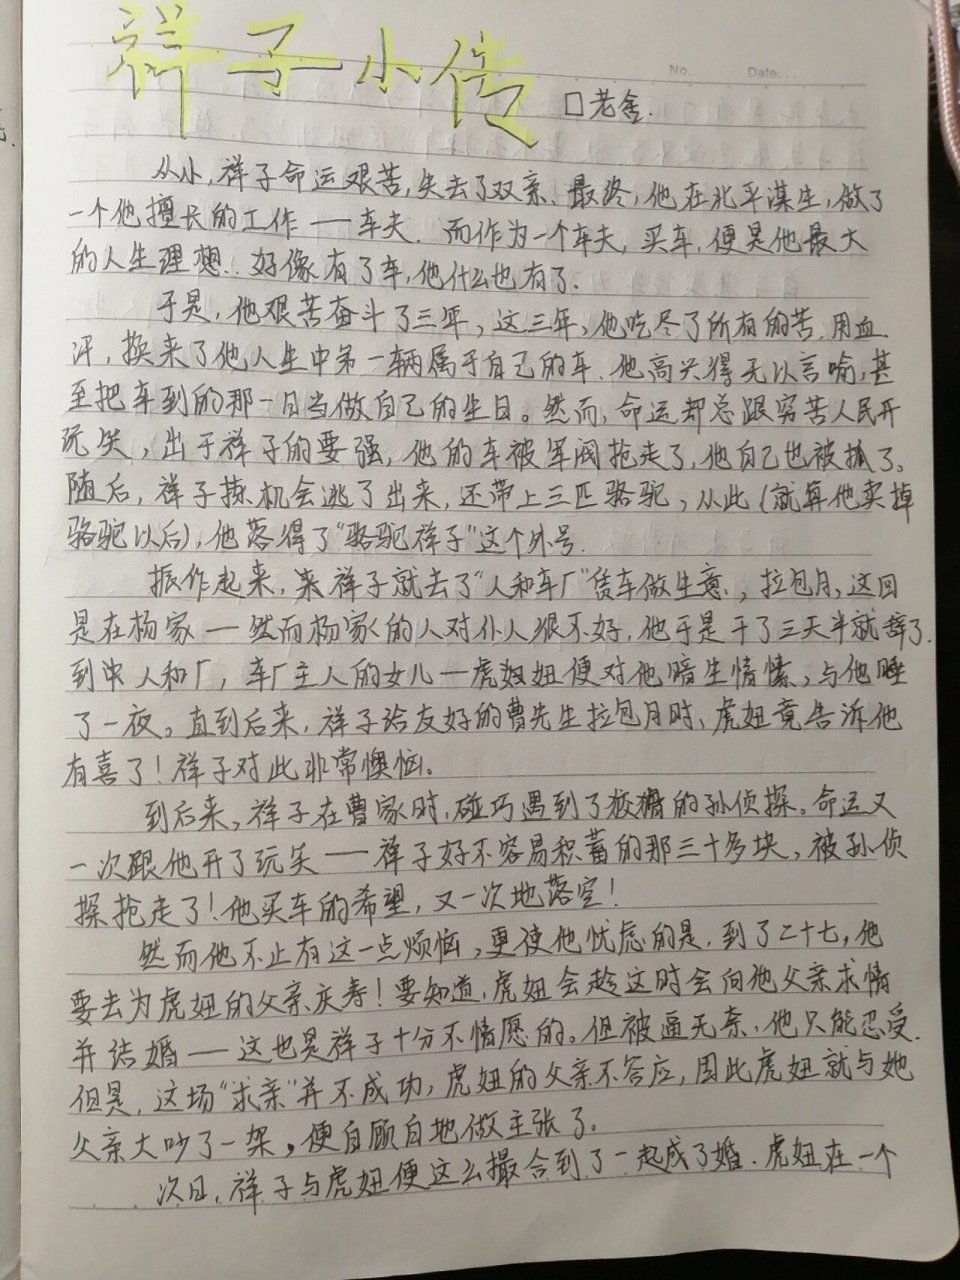 祥子小传
No. Date...
□老舍.
从小,祥子命运艰苦,失去了双亲、最终,他在北平谋生,做了
一个他擅长的工作——车夫.而作为一个车夫,买车,便是他最大
的人生理想.好像有了车,他什么也有了.
于是,他艰苦奋斗了三年,这三年,他吃尽了所有的苦.用血
汗,换来了他人生中第一辆属于自己的车.他高兴得无以言喻,甚
至把车到的那一日当做自己的生日。然而,命运却总跟穷苦人民开
玩笑,出于祥子的要强,他的车被军阀抢走了,他自己也被抓了。
随后,祥子揀机会逃了出来,还带上三匹骆驼,从此(就算他卖掉
骆驼以后),他落得了“骆驼祥子”这个外号.
振作起来,祥子就去了“人和车厂”赁车做生意,拉包月,这回
是在杨家——然而杨家的人对仆人很不好,他于是干了三天半就辞了.
到中人和厂,车厂主人的女儿—虎妞便对他暗生情愫,与他睡
了一夜。直到后来,祥子给友好的曹先生拉包月时,虎妞竟告诉他
有喜了!祥子对此非常懊恼。
到后来,祥子在曹家时,碰巧遇到了狡猾的孙侦探。命运又
一次跟他开了玩笑——祥子好不容易积蓄的那三十多块,被孙侦
探抢走了!他买车的希望,又一次地落空!
然而他不止有这一点烦恼,更使他忧虑的是.到了二十七,他
要去为虎妞的父亲庆寿!要知道,虎妞会趁这时会向他父亲求情
并结婚——这也是祥子十分不情愿的。但被逼无奈,他只能忍受.
但是,这场“求亲”并不成功,虎妞的父亲不答应,因此虎妞就与她
父亲大吵了一架。便自顾自地做主张了。
次日,祥子与虎妞便这么撮合到了一起成了婚.虎妞在一个